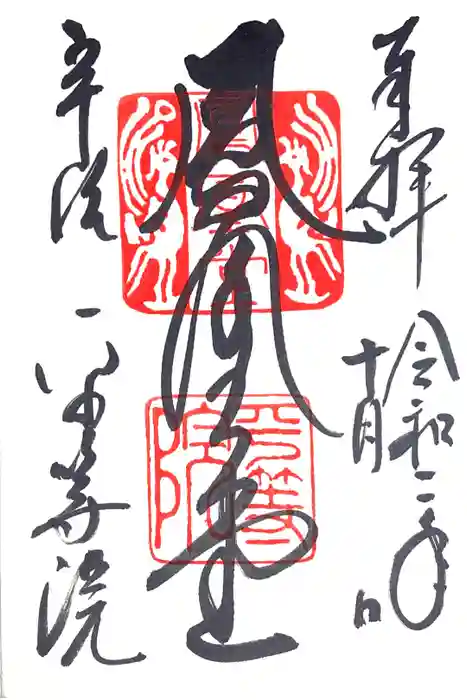 奉拝
令和二年
十月 日
鳳凰堂
平等院
宇治
平等院